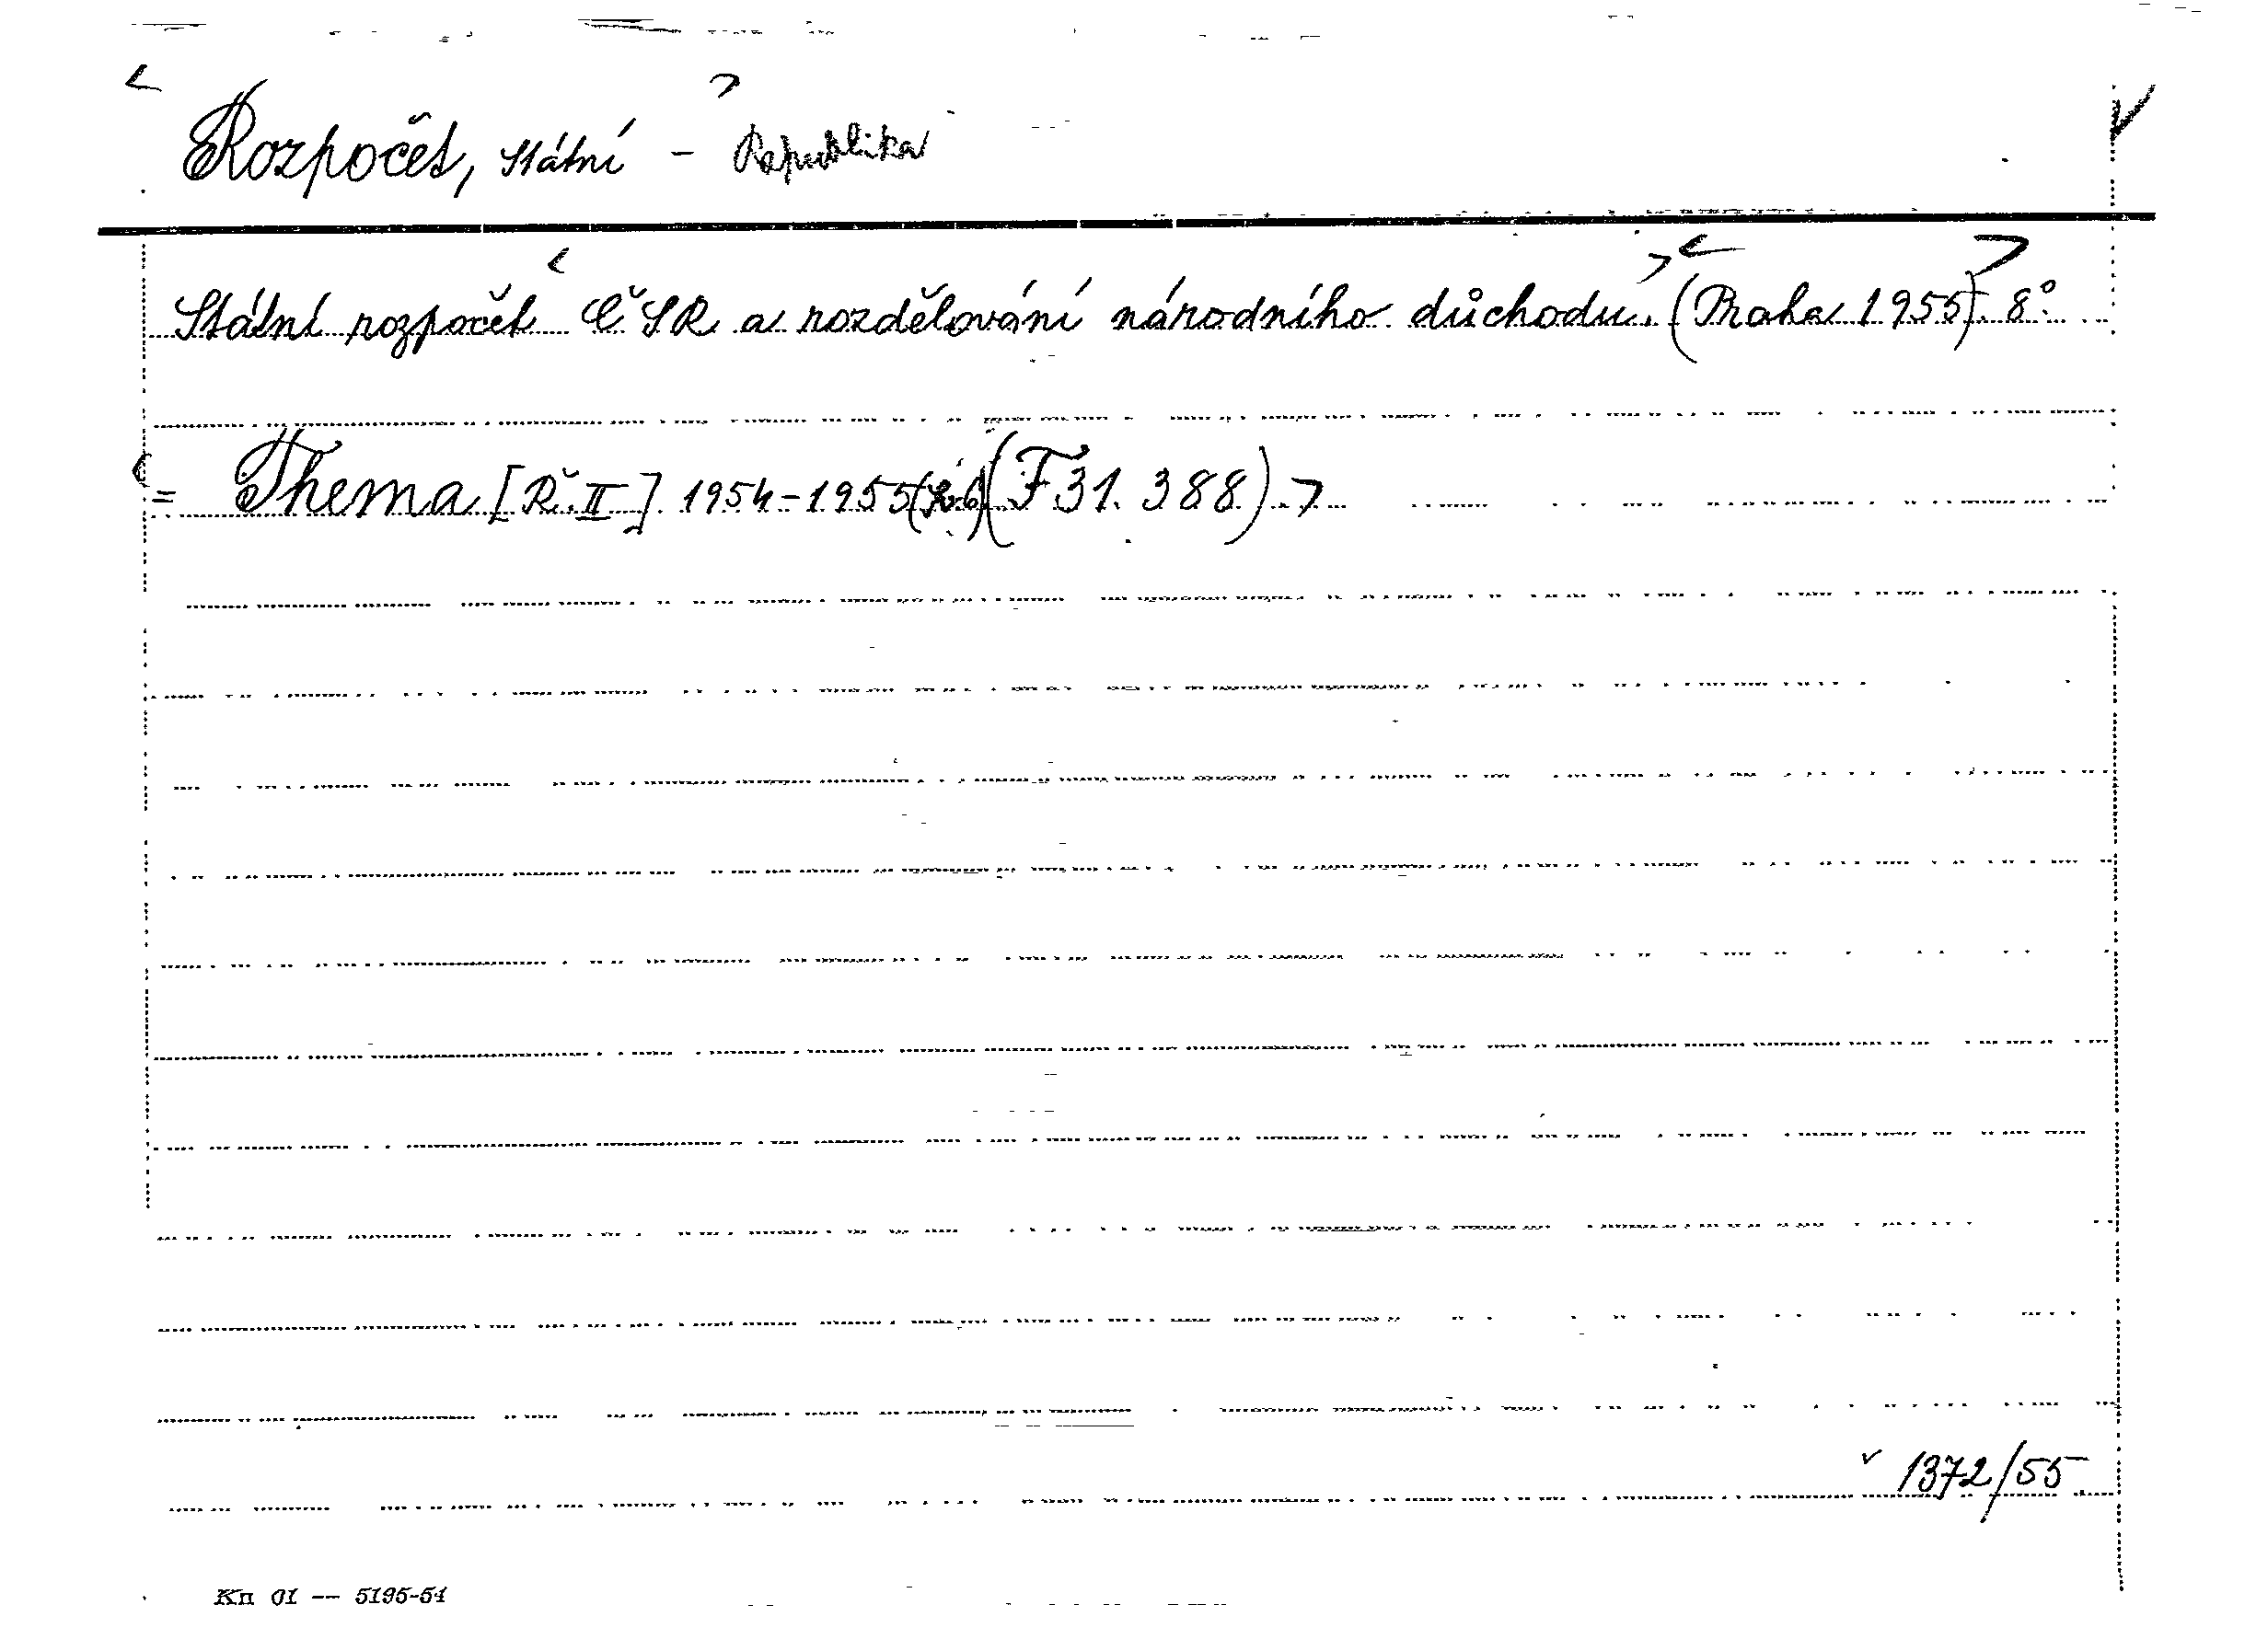 Rozpočet, státní - Republika
Státní rozpočet ČSR a rozdělování národního důchodu. (Praha 1955). 8°.
= Thema [Ř. II] 1954-1955 (F 31.388)
1372/55.
Kn 01 -- 5195-54